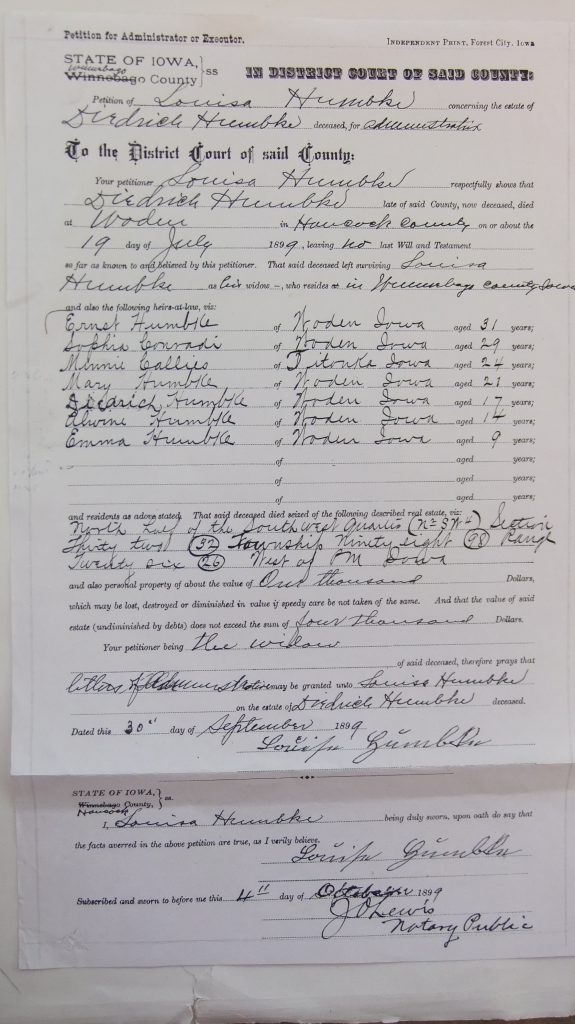 Petition for Administrator or Executor.
INDEPENDENT PRINT, Forest City, Iowa
STATE OF IOWA,
Winnebago
Winnebago County } ss
IN DISTRICT COURT OF SAID COUNTY:
Petition of Louisa Humbke concerning the estate of
Diedrich Humbke deceased, for administratrix
To the District Court of said County:
Your petitioner Louisa Humbke respectfully shows that
Diedrich Humbke late of said County, now deceased, died
at Woden in Hancock County on or about the
19 day of July 1899, leaving no last Will and Testament
so far as known to and believed by this petitioner. That said deceased left surviving Louisa
Humbke as his widow –, who resides at in Winnebago County Iowa
and also the following heirs-at-law, viz:
Ernst Humbke of Woden Iowa aged 31 years;
Sophia Conradi of Woden Iowa aged 29 years;
Minnie Callies of Titonka Iowa aged 24 years;
Mary Humbke of Woden Iowa aged 21 years;
Diedrich Humbke of Woden Iowa aged 17 years;
Alwine Humbke of Woden Iowa aged 14 years;
Emma Humbke of Woden Iowa aged 9 years;
of aged years;
of aged years;
of aged years;
and residents as above stated. That said deceased died seized of the following described real estate, viz:
North half of the South West Quarter (N½ SW4) Section
Thirty two (32) Township Ninety eight (98) Range
Twenty six (26) West of PM Iowa
and also personal property of about the value of One thousand Dollars,
which may be lost, destroyed or diminished in value if speedy care be not taken of the same. And that the value of said
estate (undiminished by debts) does not exceed the sum of four thousand Dollars.
Your petitioner being the widow
of said deceased, therefore prays that
letters of may be granted unto Louisa Humbke
on the estate of Diedrich Humbke deceased.
Dated this 30" day of September 1899
Louise Gumbke
STATE OF IOWA,
Winnebago County, } ss.
Hancock
I, Louisa Humbke being duly sworn, upon oath do say that
the facts averred in the above petition are true, as I verily believe.
Louise Gumbke
Subscribed and sworn to before me this 4" day of October 1899
J O Lewis
Notary Public